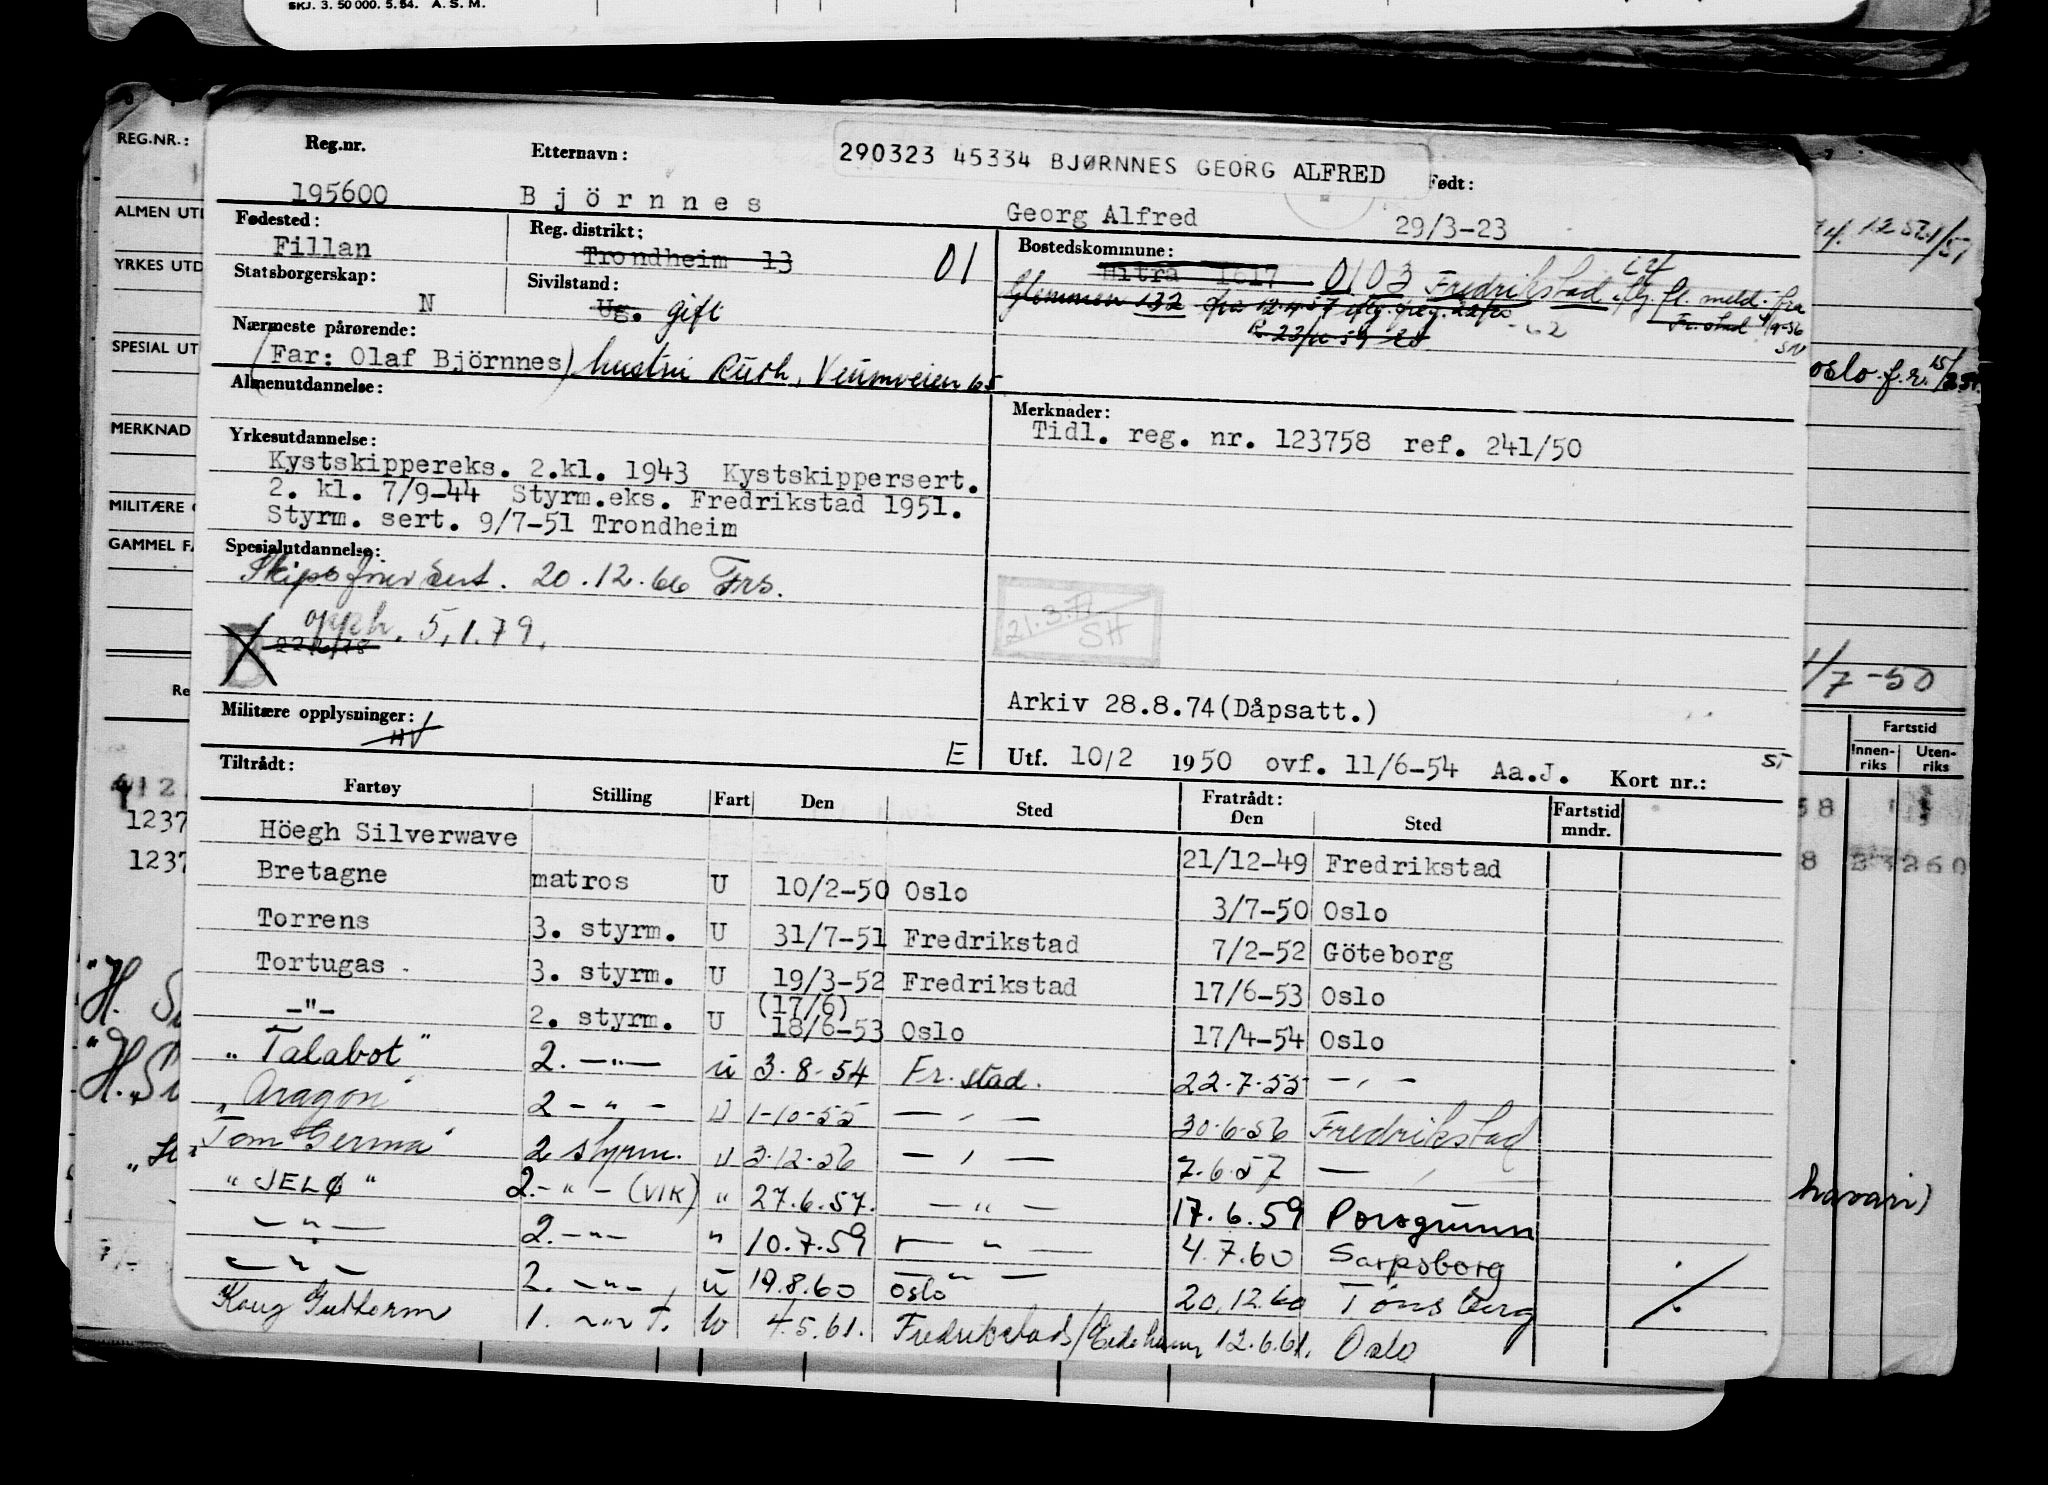 SKJ. 3. 50 000. 5. 54. A. S. M.
REG.NR.:
Reg.nr.
Etternavn:
290323 45334 BJØRNNES GEORG ALFRED
Født:
195600
Björnnes
Georg Alfred
29/3-23
ALMEN UTD
Fødested:
Fillan
Reg. distrikt:
Trondheim 13
01
Bostedskommune:
Hitra 1617
0103 Fredrikstad
flg. fl. meld. fra
Fr.stad
YRKES UTD
Statsborgerskap:
N
Sivilstand:
Ug. gift
Glemmen 132
Nærmeste pårørende:
(Far: Olaf Björnnes) hustru Ruth, Veumveien 65
SPESIAL UT
Oslo f.r.
Almenutdannelse:
Merknader:
Tidl. reg. nr. 123758 ref. 241/50
MERKNAD
Yrkesutdannelse:
Kystskippereks. 2.kl. 1943 Kystskippersert.
2. kl. 7/9-44 Styrm.eks. Fredrikstad 1951.
Styrm. sert. 9/7-51 Trondheim
MILITÆRE
GAMMEL FA
Spesialutdannelse:
Skipsfører Sert. 20.12.66 Frs.
opph. 5.1.79.
21.3.72
SH
1/7-50
Arkiv 28.8.74(Dåpsatt.)
Militære opplysninger:
HV
E
Utf. 10/2 1950 ovf. 11/6-54 Aa.J. Kort nr.:
Fartstid
Innen-riks
Uten-riks
Tiltrådt:
Fratrådt:
Fartøy Stilling Fart Den Sted Den Sted Fartstid mndr.
Höegh Silverwave 21/12-49 Fredrikstad
Bretagne matros U 10/2-50 Oslo 3/7-50 Oslo
Torrens 3. styrm. U 31/7-51 Fredrikstad 7/2-52 Göteborg
Tortugas 3. styrm. U 19/3-52 Fredrikstad 17/6-53 Oslo
-"- 2. styrm. U (17/6) 18/6-53 Oslo 17/4-54 Oslo
"Talabot" 2. -"- u 3.8.54 Fr.stad. 22.7.55 - " -
"Aragon" 2 - " - U 1-10-55 - " - 30.6.56 Fredrikstad
"Tom Germa" 2 styrm. U 3.12.56 - " - 7.6.57 - " -
"JELØ" 2. - " - (VIK) " 27.6.57. - " - 17.6.59 Porsgrunn
- " - 2. - " - " 10.7.59 - " - 4.7.60 Sarpsborg
- " - 2. - " - u 19.8.60 Oslo 20.12.60 Tønsberg
Kong Guttorm 1. - " - 4.5.61. Fredrikstad/ 12.6.61. Oslo
havari)